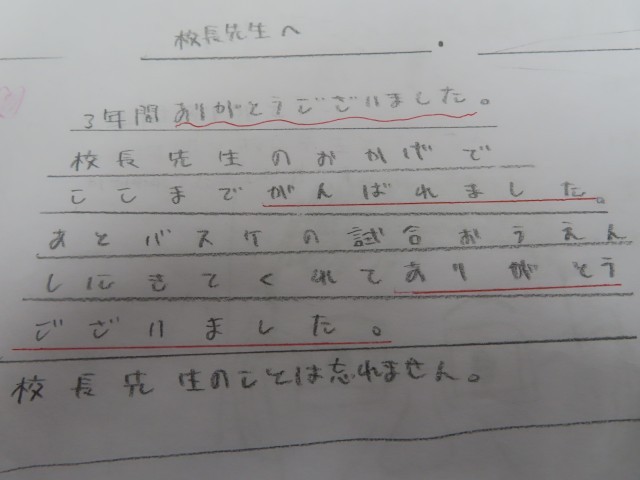 校長先生へ
3年間ありがとうございました。
校長先生のおかげで
ここまでがんばれました。
あとバスケの試合おうえん
しにきてくれてありがとう
ございました。
校長先生のことは忘れません。